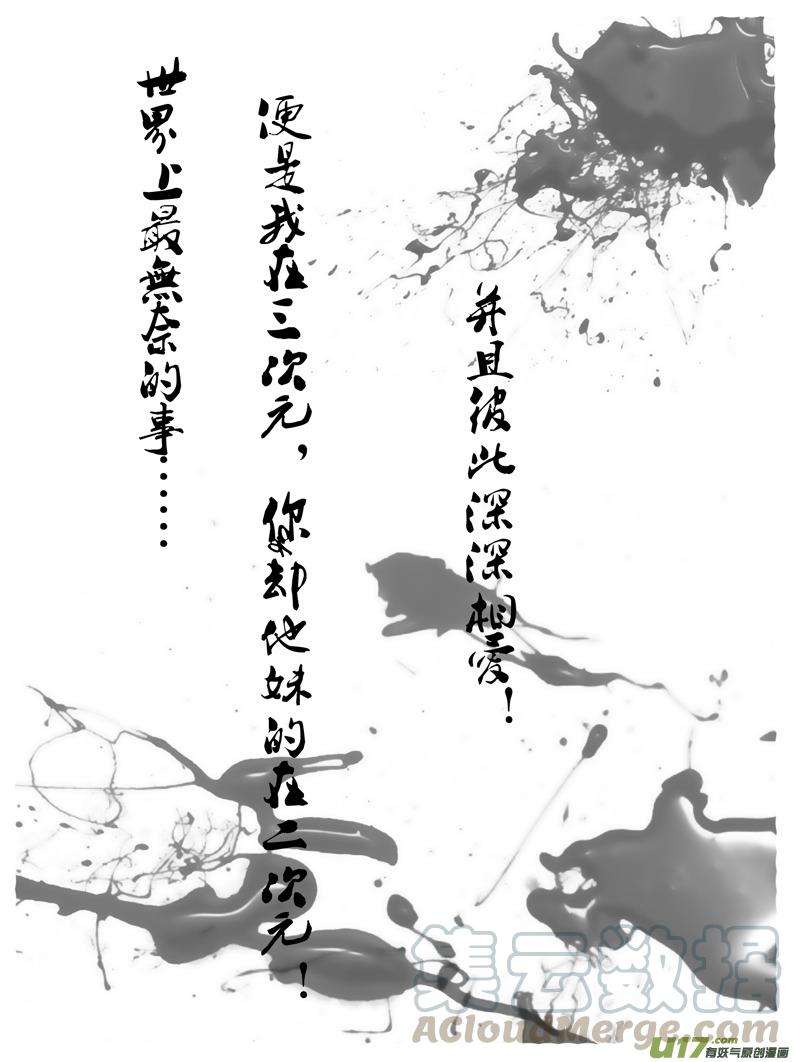 世界上最無奈的事······
便是我在三次元，您却他妹的在二次元！
并且彼此深深相愛！
集云数据
ACloudMerge.com
U17.com
有妖气原创漫画